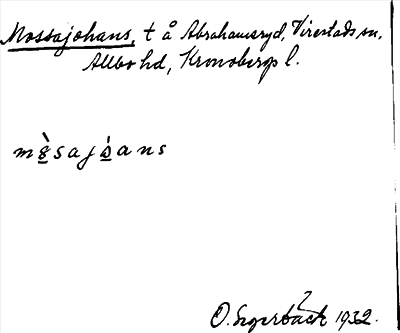 Mossajohans, t å Abrahamsryd, Virestads sn,
Allbo hd, Kronobergs l.
mò̲sajo̲̍ans
O. Segerbäck 1932.